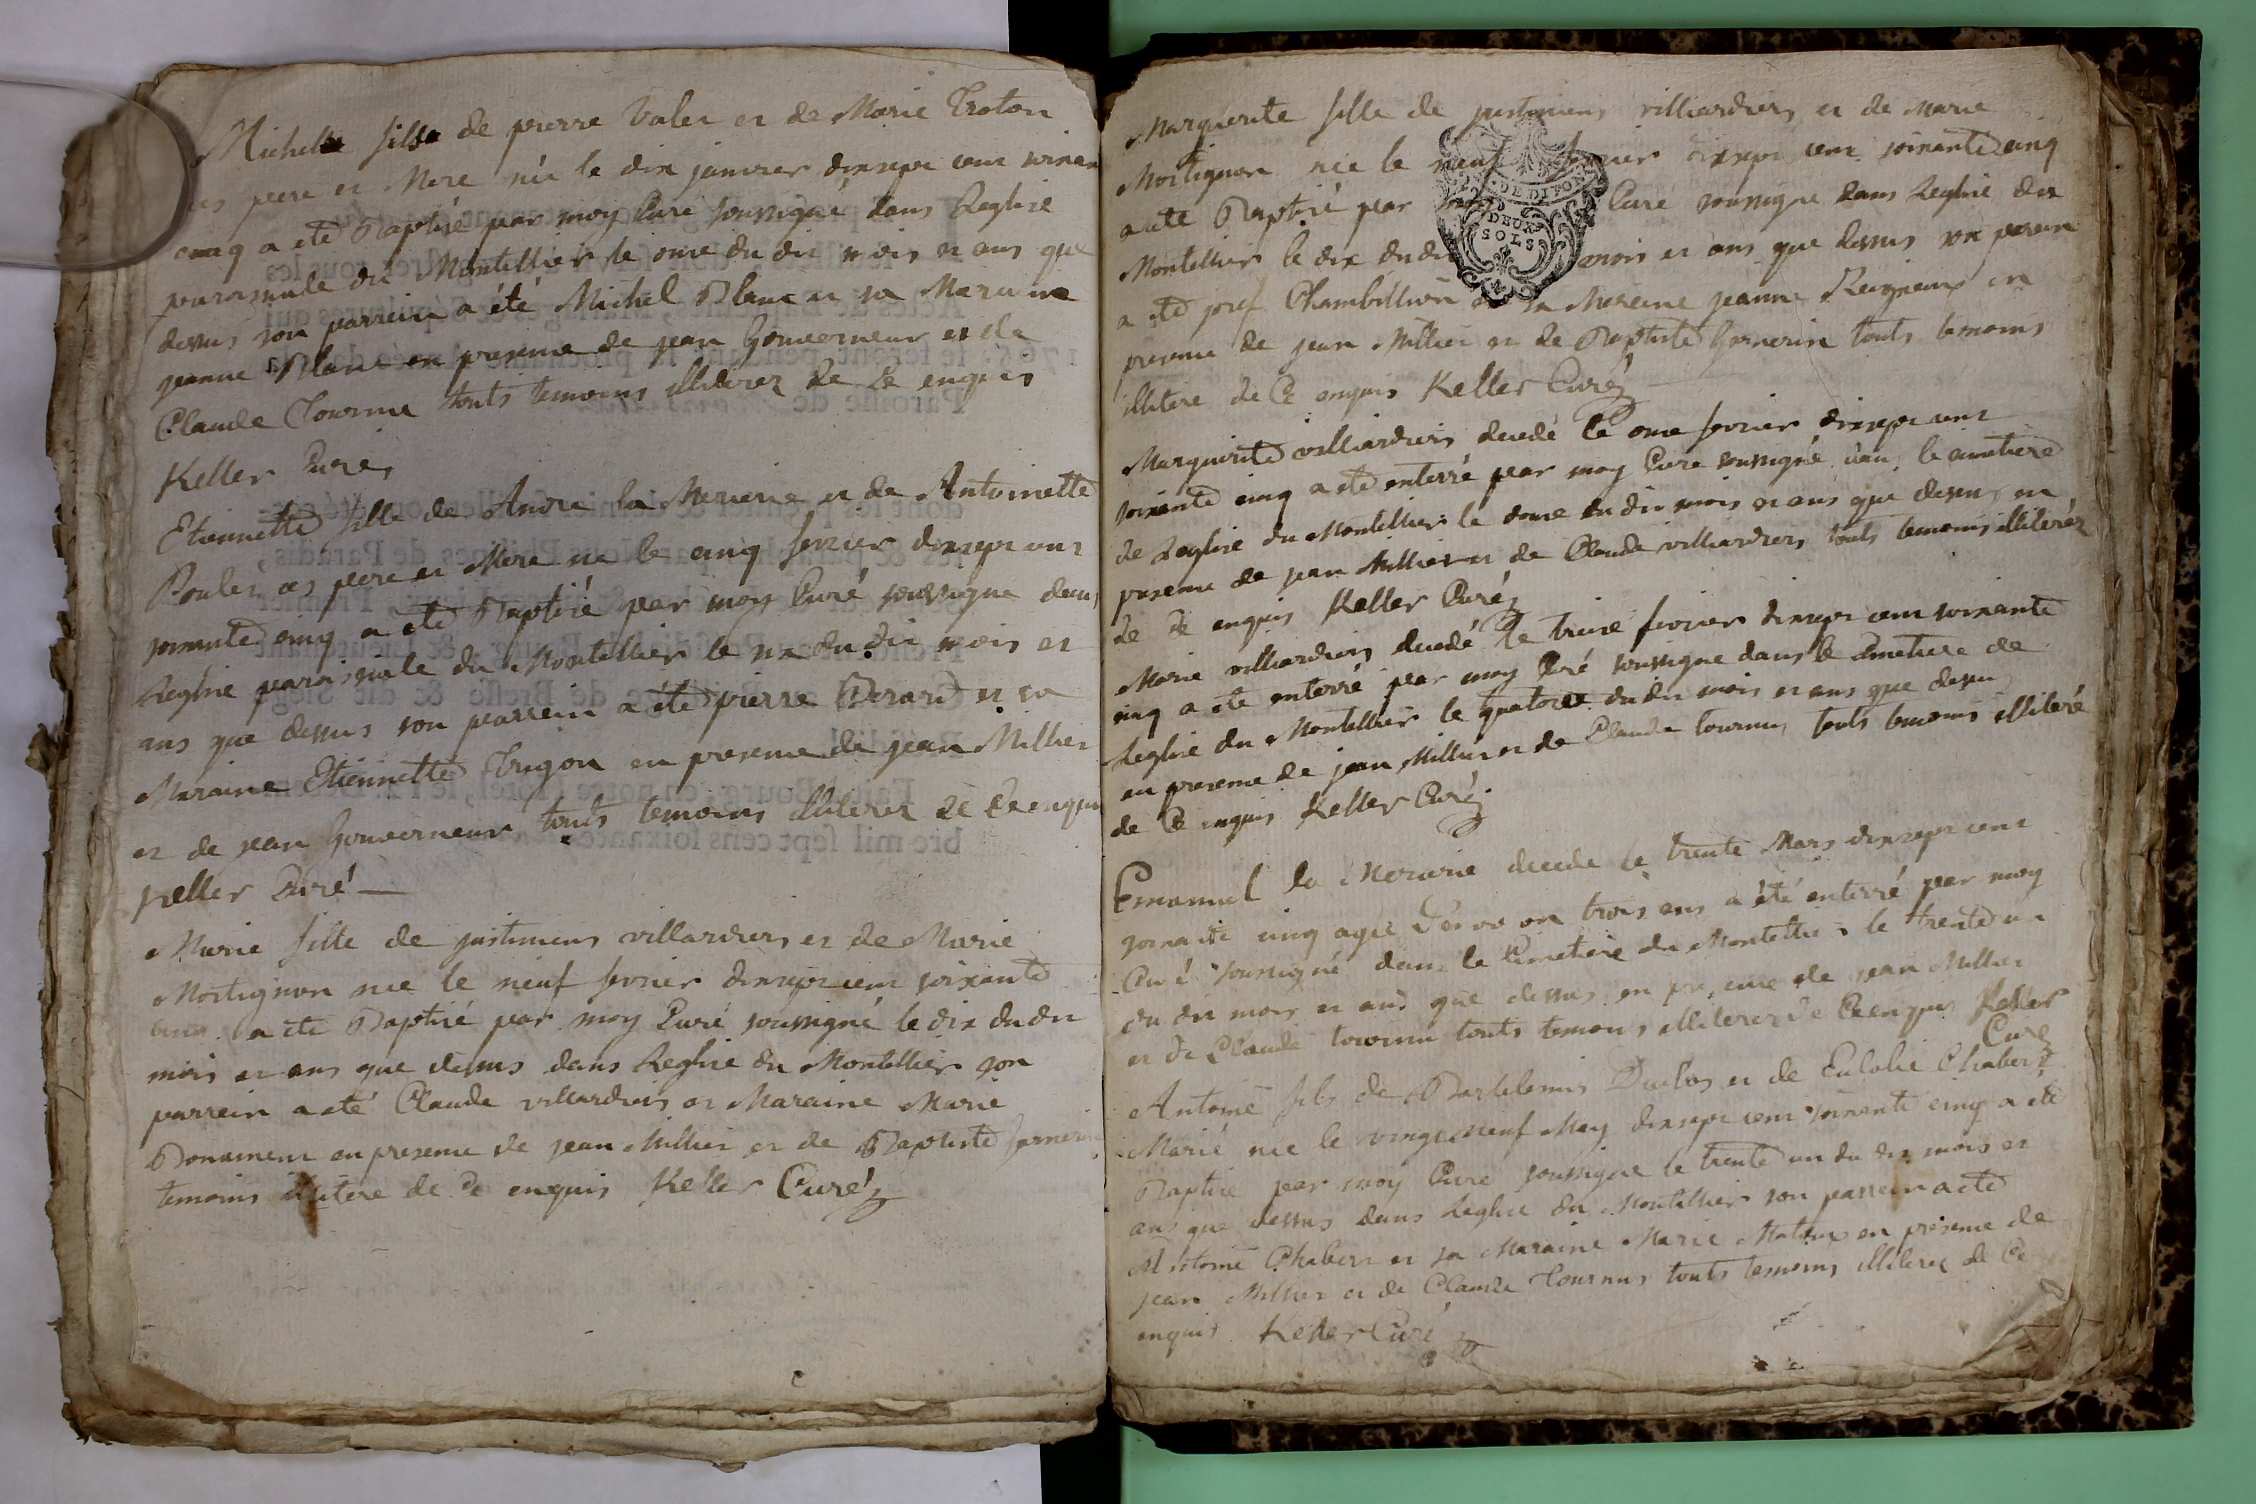 Michelle fille de pierre Valet et de Marie Troton
ses pere et Mere née le dix janvier dixsept cent soixante
cinq a eté Baptisé par moy Curé soussigné dans Leglise
paroissiale du Montellier le onze du dit mois et ans que
dessus son parrein a été Michel Blanc et sa Maraine
jeanne Blanc en presence de jean Gouverneur et de
Claude Tournu touts temoins illiterez de Ce enquis
Keller Curé
Etiennette fille de Andre la Mercerie et de Antoinette
Poulet ces pere et Mere ne le cinq fevrier dixsept cent
soixante cinq a eté Baptisé par moy Curé soussigné dans
Leglise paroissiale du Montellier le six du dit mois et
ans que dessus son parrein a eté pierre Berard et sa
Maraine Etiennette Trigon en presence de jean Millier
et de jean Gouverneur touts temoins illiterez de Ce enquis
Keller Curé
Marie fille de justinien villardiers et de Marie
Mortignon nee le neuf fevrier dixsept cent soixante
cinq a ete Baptisé par moy Curé soussigné le dix du dit
mois et ans que dessus dans Leglise du Montellier son
parrein a eté Claude villardiers et Maraine Marie
en presence de jean Millier et de Baptiste
temoins illitere de Ce enquis Keller Curé
Marguerite fille de justinien villiardiers et de Marie
Mortignon nee le neuf fevrier dixsept cent soixante cinq
a ete Baptisé par moy Curé soussigne dans Leglise du
GEN. DE DIJON
DEUX
SOLS
Montellier le dix du dit mois et ans que dessus son parein
a eté josef Chambillion et sa Mareine jeanne en
presence de jean Millier et de Baptiste touts temoins
illitere de Ce enquis Keller Curé
Marguerite villiardiers decedé le onze fevrier dixsept cent
soixante cinq a eté enterré par moy Cure soussigné dans le cimetiere
de Leglise du Montellier le douze du dit mois et ans que dessus en
presence de jean Millier et de Claude villiardiers touts temoins illiterez
de Ce enquis Keller Curé
Marie villiardiers decedé le treize fevrier dixsept cent soixante
cinq a ete enterré par moy Curé soussigne dans le Cimetiere de
Leglise du Montellier le quatorze du dit mois et ans que dessus
en presence de jean Millier et de Claude tournu touts temoins illiteré
de Ce enquis Keller Curé
Emanuel la Mercerie decede le trente Mars dixsept cent
soixante cinq agé trois ans a été enterré par moy
Curé soussigné dans le Cimetiere du Montellier le trente un
du dit mois et ans que dessus en presence de jean Millier
et de Claude tournu touts temoins illiterez de Ce enquis Keller
Curé
Antoine fils de Bartelemis Duclos et de Eulalie Chabert
Marié nee le vingt neuf May dixsept cent soixante cinq a eté
Baptisé par moy Cure soussigne le trente un du dit mois et
ans que dessus dans Leglise du Montellier son parrein a eté
Antoine Chabert et sa Maraine Marie en presence de
jean Millier et de Claude Tournus touts temoins illiterez de Ce
enquis Keller Curé